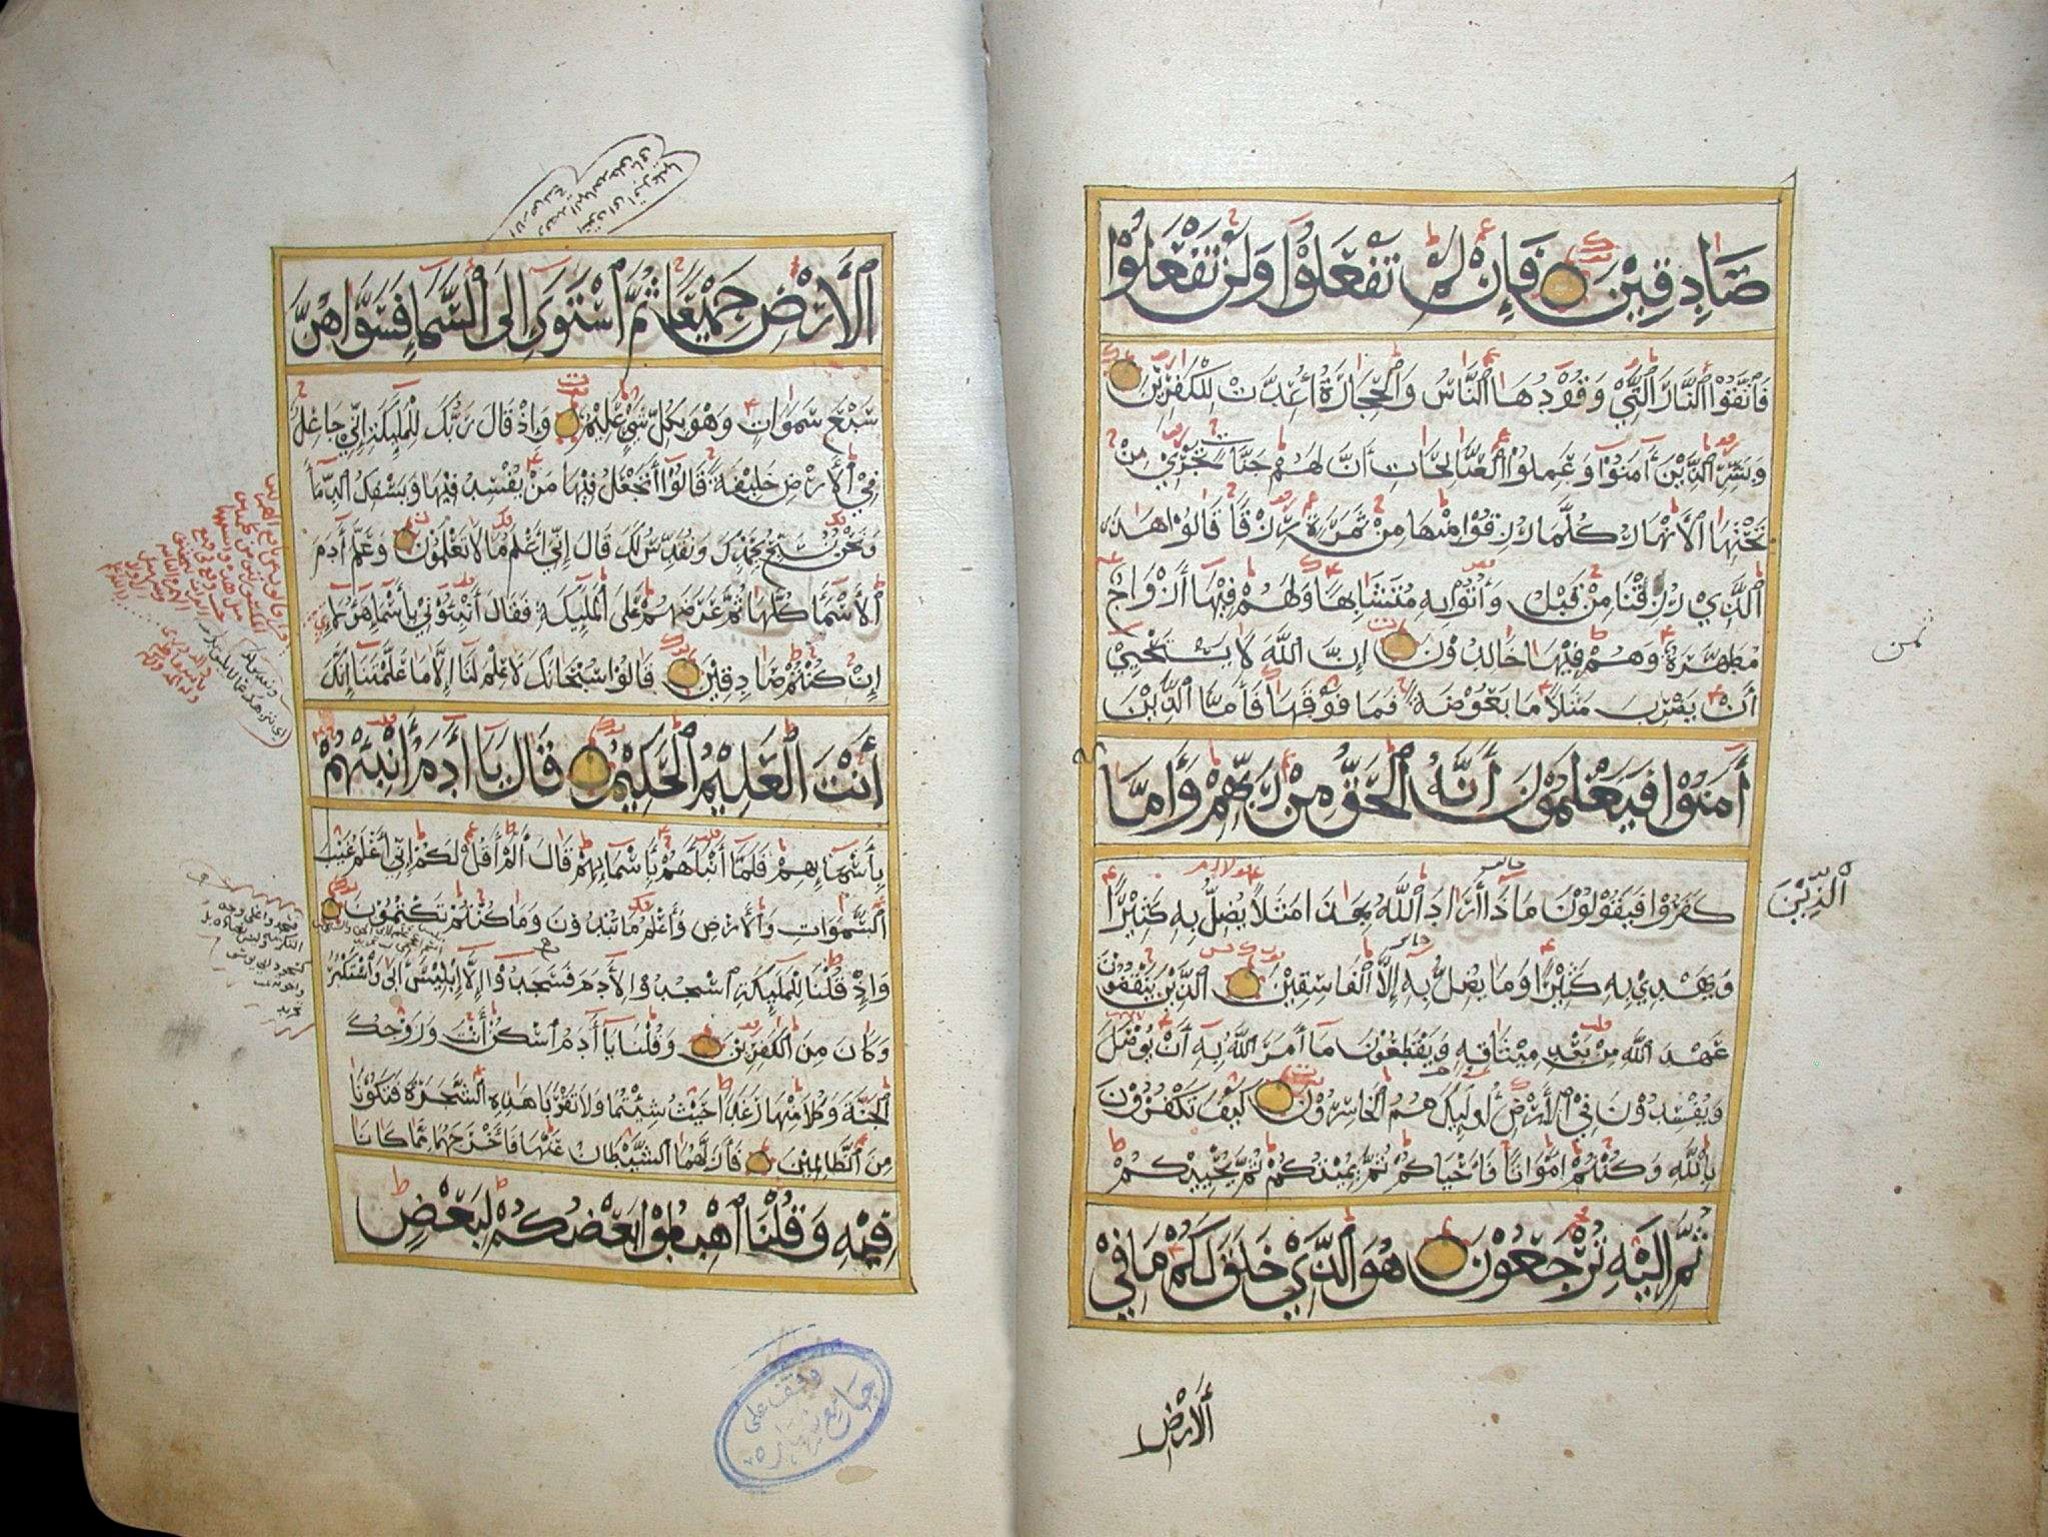 صَادِقِيْنَ فَإِنْ لَمْ تَفْعَلُوْا وَلَنْ تَفْعَلُوْا
فَاتَّقُوْا النَّارَ الَّتِيْ وَقُوْدُهَا النَّاسُ وَالْحِجَارَةُ أُعِدَّتْ لِلْكٰفِرِيْنَ
وَبَشِّرِ الَّذِيْنَ آمَنُوْا وَعَمِلُوا الصَّالِحَاتِ أَنَّ لَهُمْ جَنَّاتٍ تَجْرِيْ مِنْ
تَحْتِهَا الْأَنْهَارُ كُلَّمَا رُزِقُوْا مِنْهَا مِنْ ثَمَرَةٍ رِزْقًا قَالُوْا هٰذَا
الَّذِيْ رُزِقْنَا مِنْ قَبْلُ وَأُتُوْا بِهِ مُتَشَابِهًا وَلَهُمْ فِيْهَا أَزْوَاجٌ
مُطَهَّرَةٌ وَهُمْ فِيْهَا خَالِدُوْنَ إِنَّ اللّٰهَ لَا يَسْتَحْيِيْ
أَنْ يَضْرِبَ مَثَلًا مَا بَعُوْضَةً فَمَا فَوْقَهَا فَأَمَّا الَّذِيْنَ
آمَنُوْا فَيَعْلَمُوْنَ أَنَّهُ الْحَقُّ مِنْ رَبِّهِمْ وَأَمَّا
الَّذِيْنَ
كَفَرُوْا فَيَقُوْلُوْنَ مَاذَا أَرَادَ اللّٰهُ بِهٰذَا مَثَلًا يُضِلُّ بِهِ كَثِيْرًا
وَيَهْدِيْ بِهِ كَثِيْرًا وَمَا يُضِلُّ بِهِ إِلَّا الْفَاسِقِيْنَ الَّذِيْنَ يَنْقُضُوْنَ
عَهْدَ اللّٰهِ مِنْ بَعْدِ مِيْثَاقِهِ وَيَقْطَعُوْنَ مَا أَمَرَ اللّٰهُ بِهِ أَنْ يُوْصَلَ
وَيُفْسِدُوْنَ فِي الْأَرْضِ أُولٰئِكَ هُمُ الْخَاسِرُوْنَ كَيْفَ تَكْفُرُوْنَ
بِاللّٰهِ وَكُنْتُمْ أَمْوَاتًا فَأَحْيَاكُمْ ثُمَّ يُمِيْتُكُمْ ثُمَّ يُحْيِيْكُمْ
ثُمَّ إِلَيْهِ تُرْجَعُوْنَ هُوَ الَّذِيْ خَلَقَ لَكُمْ مَا فِيْ
الْأَرْضِ
ثمن
الْأَرْضِ جَمِيْعًا ثُمَّ اسْتَوَى إِلَى السَّمَاءِ فَسَوَّاهُنَّ
سَبْعَ سَمَوَاتٍ وَهُوَ بِكُلِّ شَيْءٍ عَلِيْمٌ وَإِذْ قَالَ رَبُّكَ لِلْمَلٰئِكَةِ إِنِّيْ جَاعِلٌ
فِي الْأَرْضِ خَلِيْفَةً قَالُوْا أَتَجْعَلُ فِيْهَا مَنْ يُفْسِدُ فِيْهَا وَيَسْفِكُ الدِّمَاءَ
وَنَحْنُ نُسَبِّحُ بِحَمْدِكَ وَنُقَدِّسُ لَكَ قَالَ إِنِّيْ أَعْلَمُ مَا لَا تَعْلَمُوْنَ وَعَلَّمَ آدَمَ
الْأَسْمَاءَ كُلَّهَا ثُمَّ عَرَضَهُمْ عَلَى الْمَلٰئِكَةِ فَقَالَ أَنْبِئُوْنِيْ بِأَسْمَاءِ هٰؤُلَاءِ
إِنْ كُنْتُمْ صَادِقِيْنَ قَالُوْا سُبْحَانَكَ لَا عِلْمَ لَنَا إِلَّا مَا عَلَّمْتَنَا إِنَّكَ
أَنْتَ الْعَلِيْمُ الْحَكِيْمُ قَالَ يَا آدَمُ أَنْبِئْهُمْ
بِأَسْمَائِهِمْ فَلَمَّا أَنْبَأَهُمْ بِأَسْمَائِهِمْ قَالَ أَلَمْ أَقُلْ لَكُمْ إِنِّيْ أَعْلَمُ غَيْبَ
السَّمٰوَاتِ وَالْأَرْضِ وَأَعْلَمُ مَا تُبْدُوْنَ وَمَا كُنْتُمْ تَكْتُمُوْنَ
وَإِذْ قُلْنَا لِلْمَلٰئِكَةِ اسْجُدُوْا لِآدَمَ فَسَجَدُوْا إِلَّا إِبْلِيْسَ أَبَى وَاسْتَكْبَرَ
وَكَانَ مِنَ الْكٰفِرِيْنَ وَقُلْنَا يَا آدَمُ اسْكُنْ أَنْتَ وَزَوْجُكَ
الْجَنَّةَ وَكُلَا مِنْهَا رَغَدًا حَيْثُ شِئْتُمَا وَلَا تَقْرَبَا هٰذِهِ الشَّجَرَةَ فَتَكُوْنَا
مِنَ الظَّالِمِيْنَ فَأَزَلَّهُمَا الشَّيْطَانُ عَنْهَا فَأَخْرَجَهُمَا مِمَّا كَانَا
فِيْهِ وَقُلْنَا اهْبِطُوْا بَعْضُكُمْ لِبَعْضٍ
وقف على
جامع